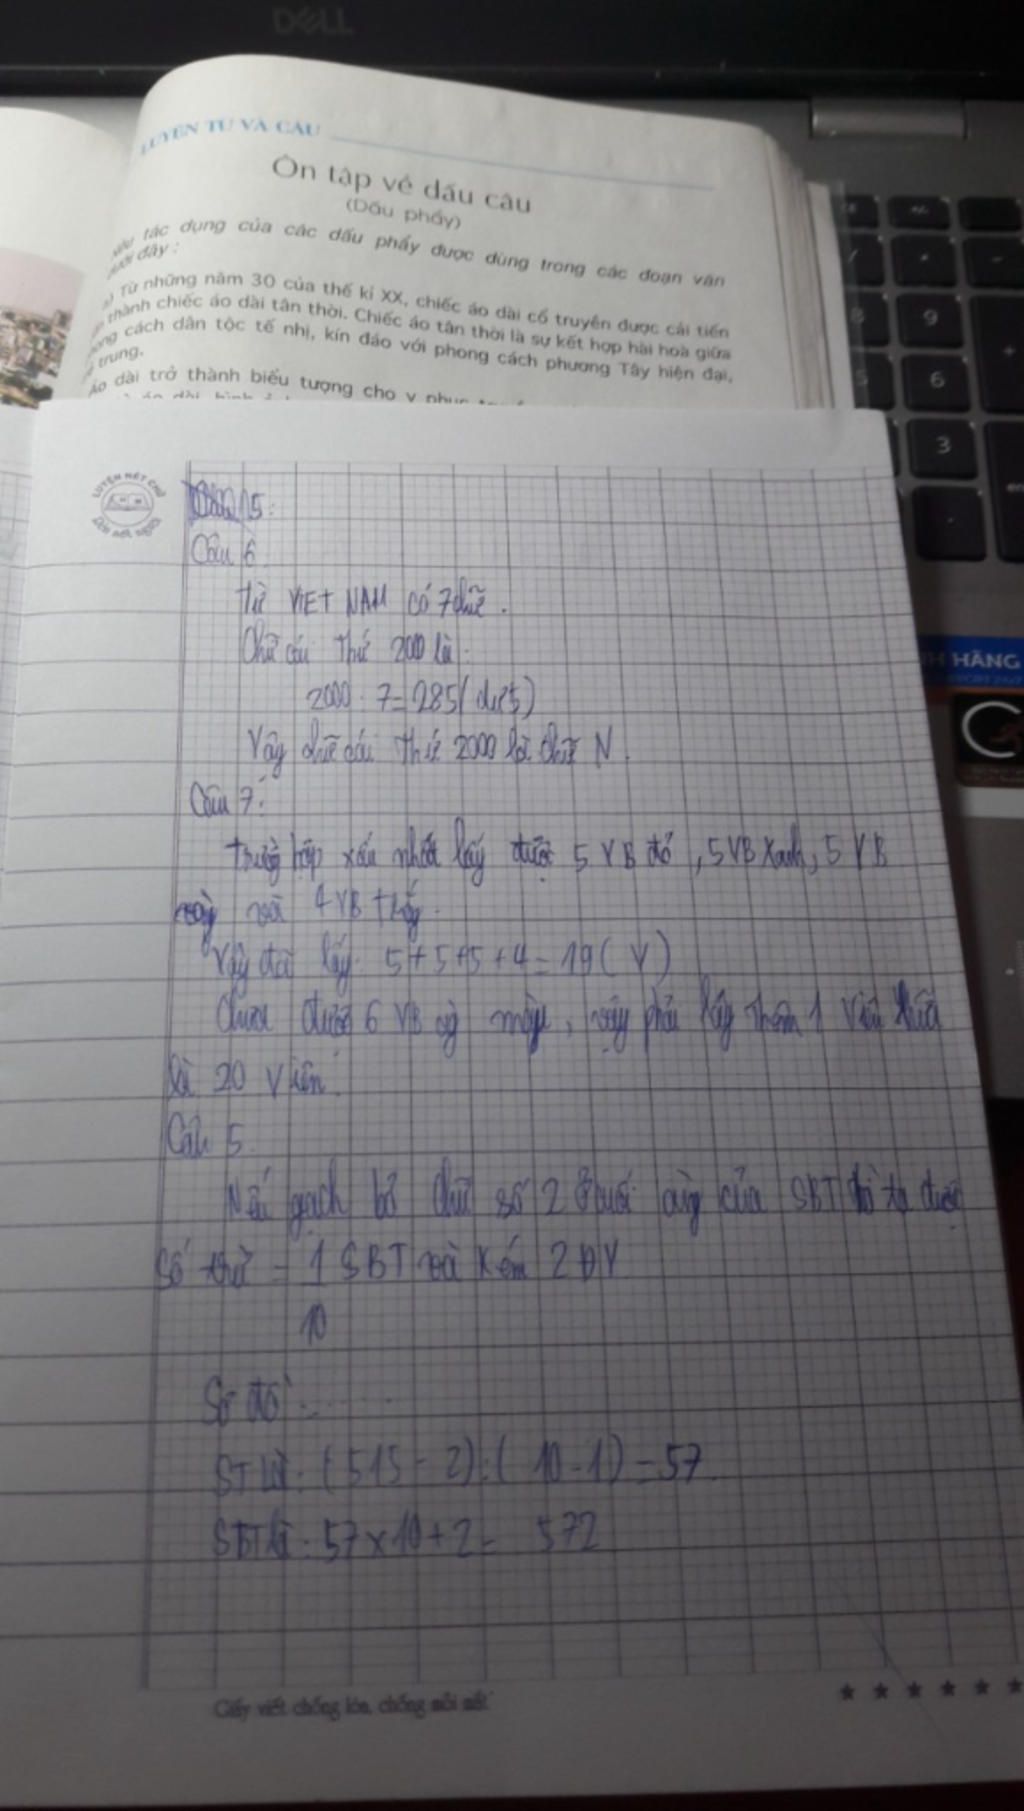 DELL
LUYỆN TỪ VÀ CÂU
Ôn tập về dấu câu
(Dấu phẩy)
tác dụng của các dấu phẩy được dùng trong các đoạn văn
dưới đây :
a) Từ những năm 30 của thế kỉ XX, chiếc áo dài cổ truyền được cải tiến
thành chiếc áo dài tân thời. Chiếc áo tân thời là sự kết hợp hài hoà giữa
phong cách dân tộc tế nhị, kín đáo với phong cách phương Tây hiện đại,
trẻ trung.
Áo dài trở thành biểu tượng cho y phục
9
6
3
HÃNG
LUYỆN NÉT CHỮ
RÈN NẾT NGƯỜI
15:
Câu 6
Từ VIET NAM có 7 chữ.
Chữ cái thứ 2000 là:
2000 : 7 = 285 (dư 5)
Vậy chữ cái thứ 2000 là chữ N.
Câu 7:
Trường hợp xấu nhất lấy được 5 VB đỏ, 5 VB Xanh, 5 VB
vàng và 4 VB trắng.
Vậy đã lấy: 5+5+5+4 = 19 ( V )
Chưa được 6 VB cùng màu, vậy phải lấy thêm 1 viên nữa
là 20 Viên.
Câu 5.
Nếu gạch bỏ chữ số 2 ở cuối cùng của SBT thì ta được
số trừ = 1 SBT và kém 2 ĐV
10
Sơ đồ: .......
ST là: (515 - 2) : ( 10 - 1) = 57.
SBT là: 57 x 10 + 2 = 572
Giấy viết chống lóa, chống mỏi mắt